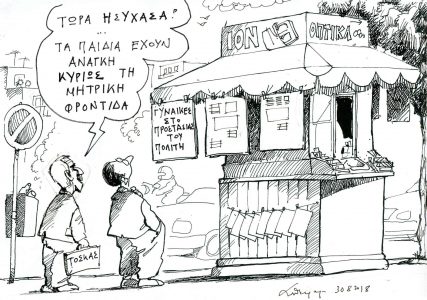 ΤΩΡΑ ΗΣΥΧΑΣΑ!
...
ΤΑ ΠΑΙΔΙΑ ΕΧΟΥΝ
ΑΝΑΓΚΗ
ΚΥΡΙΩΣ ΤΗ
ΜΗΤΡΙΚΗ
ΦΡΟΝΤΙΔΑ
ΙΟΝ
ΟΠΤΙΚΑ
ΓΥΝΑΙΚΕΣ
ΣΤΟ
ΠΡΟΣΤΑΣΙΑΣ
ΤΟΥ
ΠΟΛΙΤΗ
ΤΟΣΚΑΣ
30.8.2018